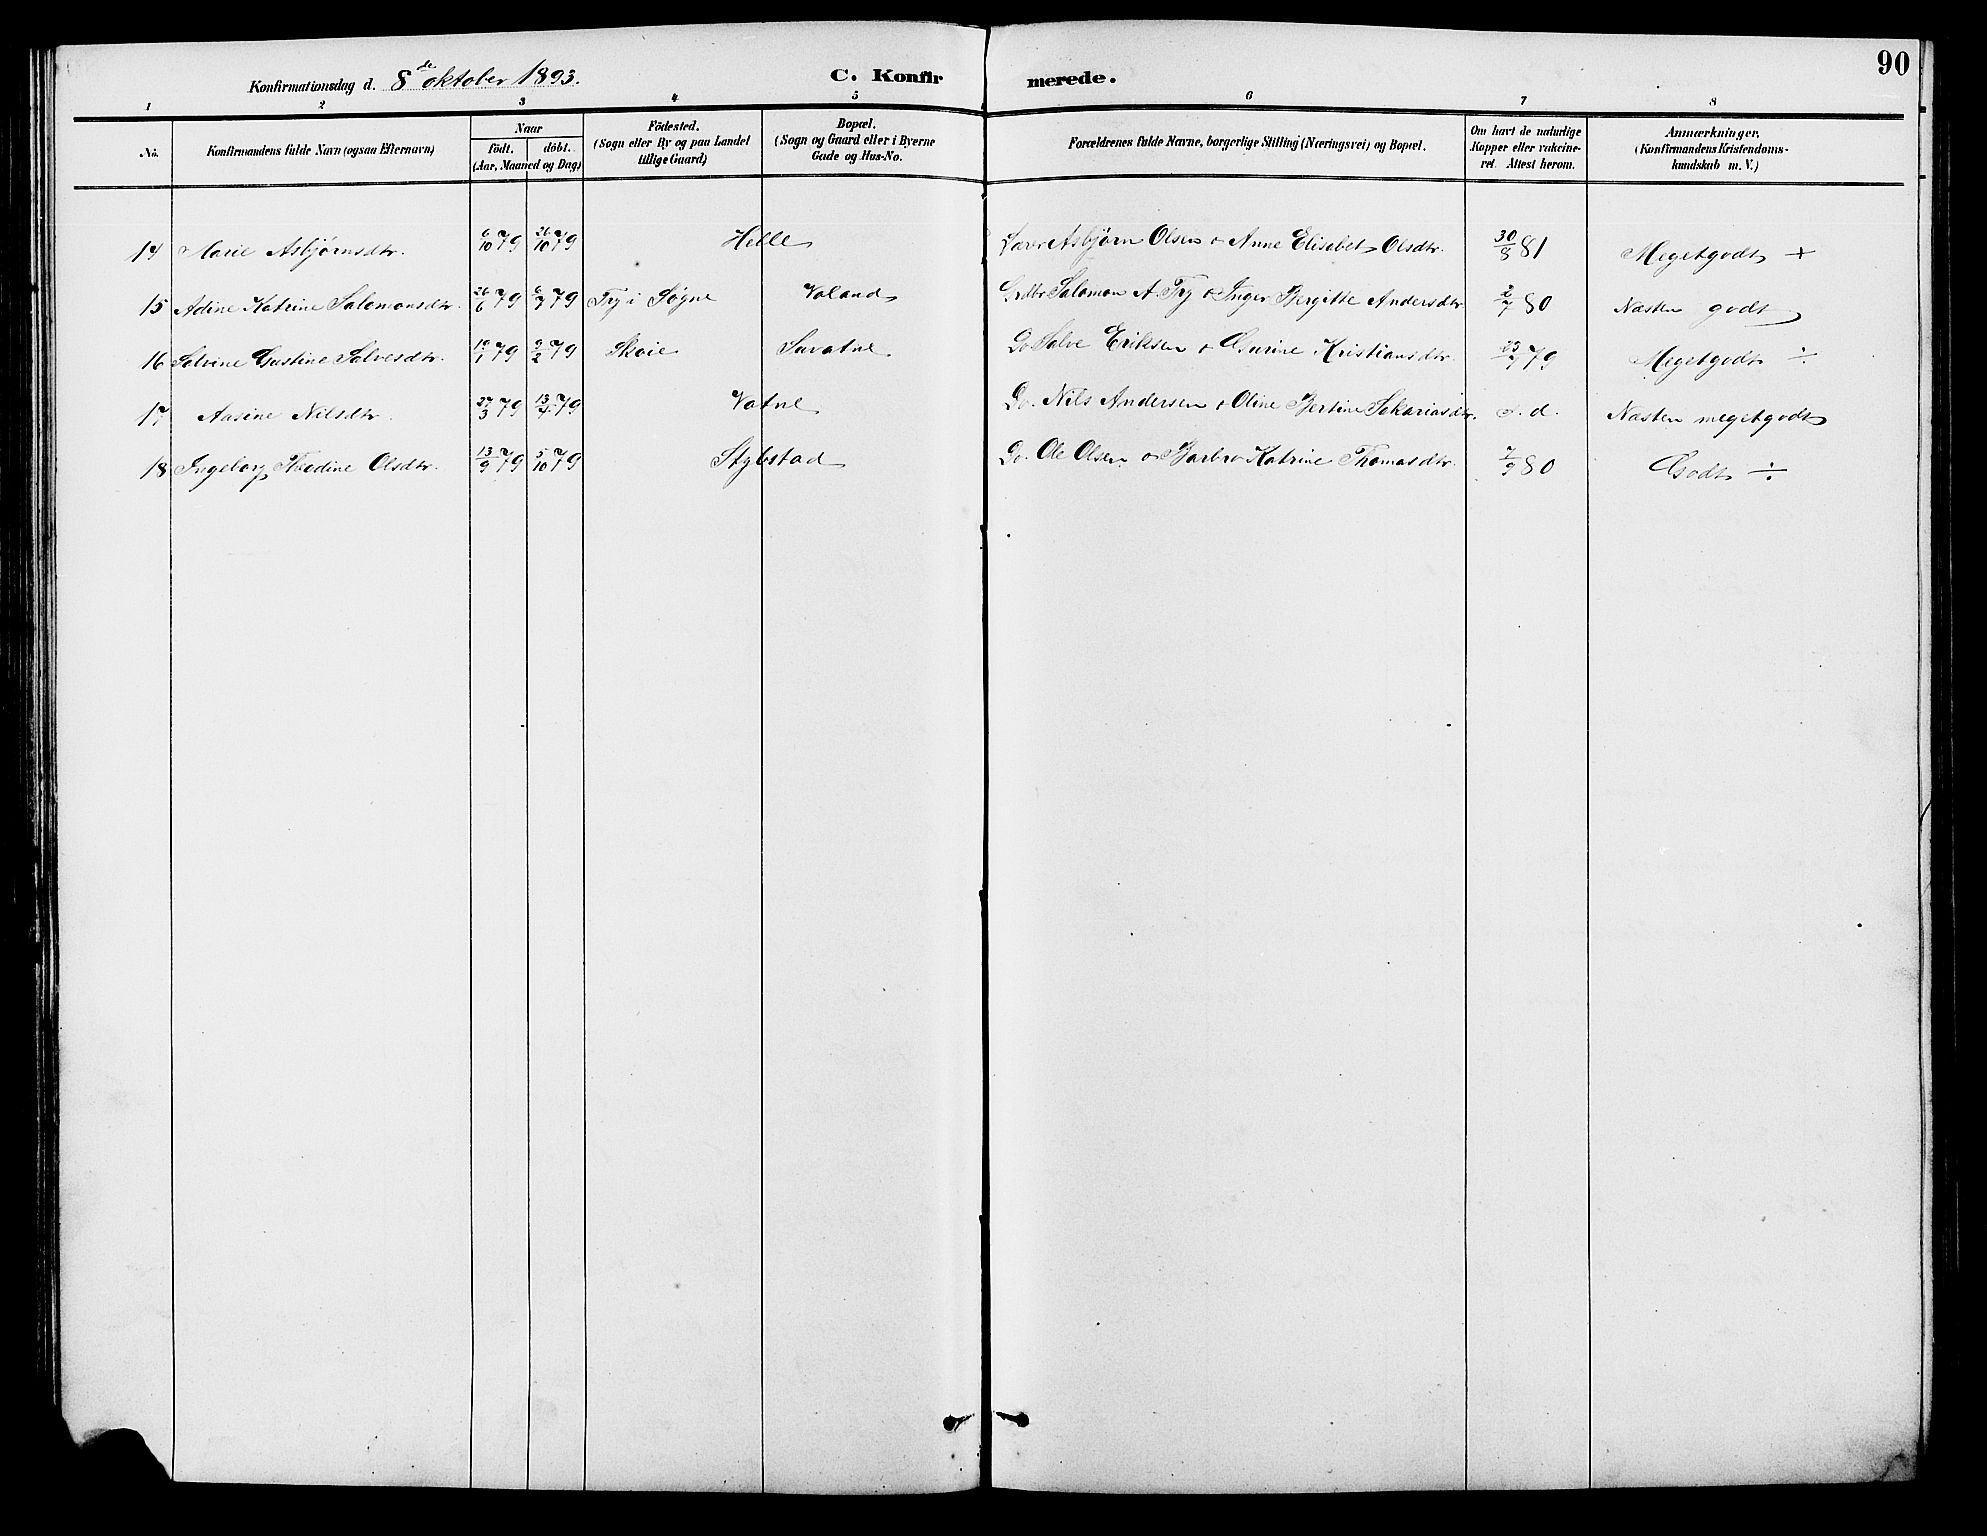 90
Konfirmationsdag d. 8de oktober 1893. C. Konfirmerede.
1 2 3 4 5 6 7 8
No. Konfirmandens fulde Navn (ogsaa Efternavn) Naar født. døbt. (Aar, Maaned og Dag) Födested. (Sogn eller By og paa Landet tillige Gaard) Bopæl. (Sogn og Gaard eller i Byerne Gade og Hus-No. Forældrenes fulde Navne, borgerlige Stilling (Næringsvei) og Bopæl. Om havt de naturlige Kopper eller vakcineret. Attest herom. Anmærkninger. (Konfirmandens Kristendomskundskab m. V.)
14 Marie Asbjørnsdtr. 6/10 79 26/10 79 Helle Lærer Asbjørn Olsen o Anne Elisabet Olsdtr. 30/8 81 Megetgodt +
15 Adine Katrine Salomonsdtr. 26/6 79 6/7 79 Try i Søgne Valand Grdbr Salomon A. Try o Inger Bergitte Andersdtr 2/7 80 Næsten godt
16 Salvine Gustine Salvesdtr. 19/1 79 9/2 79 Skoie Do Salve Eriksen o Gurine Kristiansdtr. 23/7 79 Megetgodt ÷
17 Aasine Nilsdtr. 27/3 79 13/4 79 Vatne Do. Nils Andersen o Oline Bertine Sakariasdtr. s. d. Næsten megetgodt
18 Ingeborg Tredine Olsdtr. 13/9 79 5/10 79 Do. Ole Olsen o Barbro Katrine Thomasdtr. 7/9 80 Godt ÷